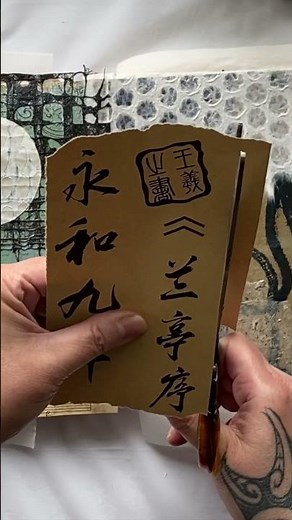 王羲之書
《兰亭序
永和九